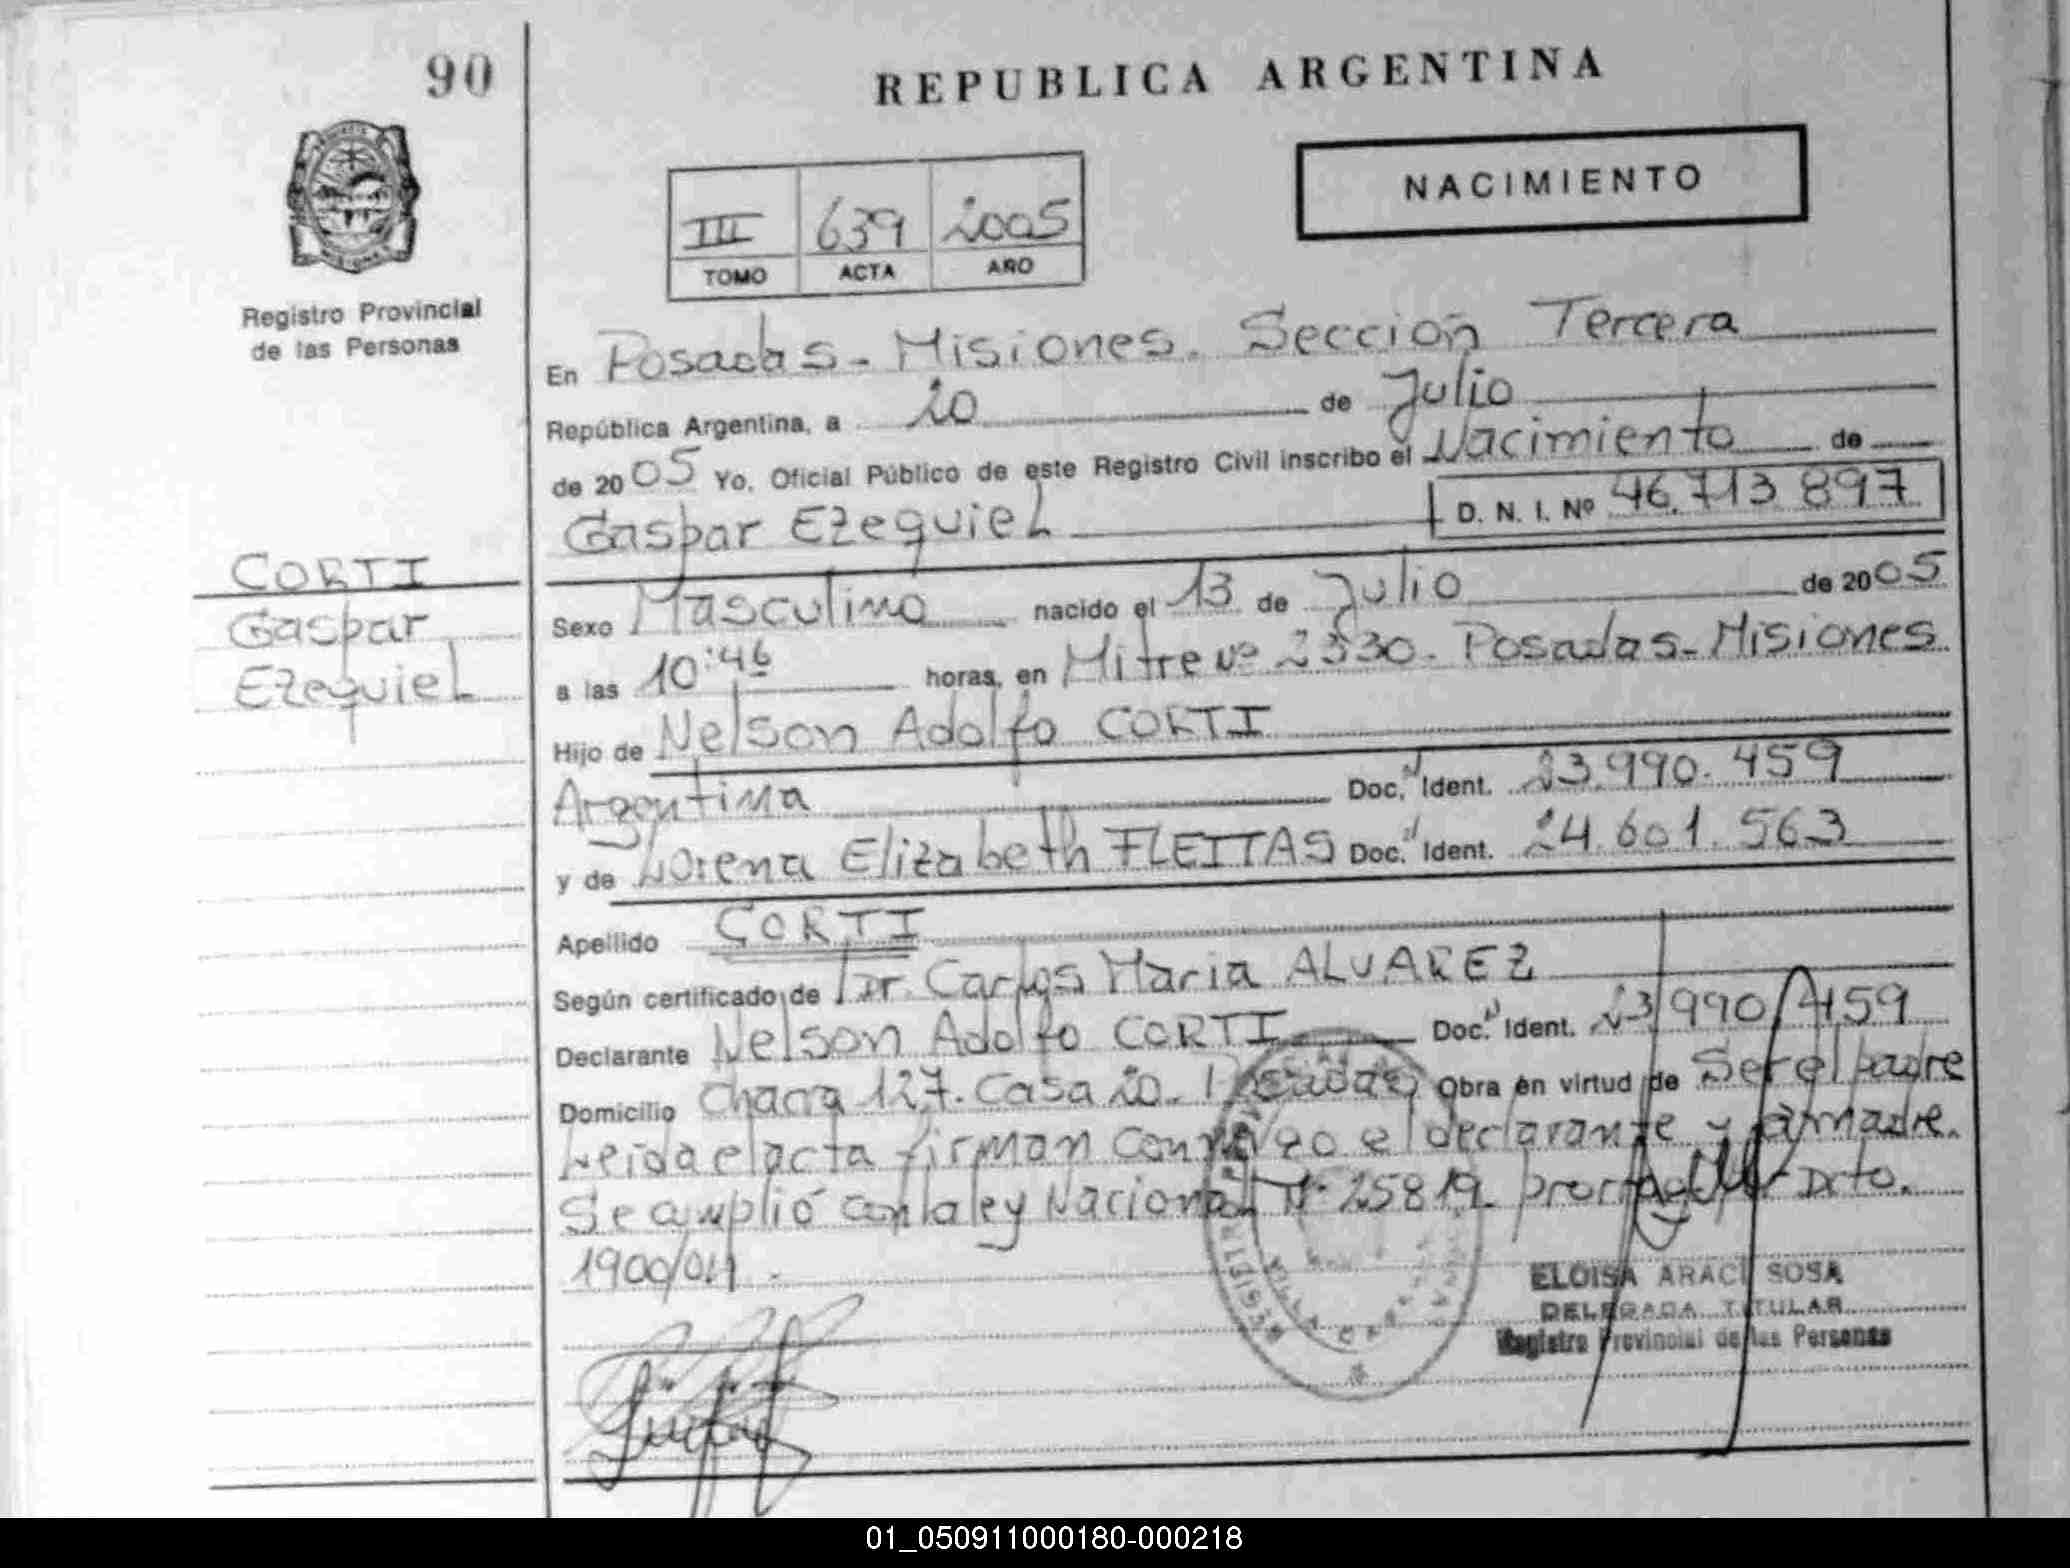 90
REPUBLICA ARGENTINA
NACIMIENTO
III 639 2005
TOMO ACTA AÑO
Registro Provincial
de las Personas
En Posadas - Misiones. Sección Tercera
República Argentina, a 20 de Julio
de 2005 Yo, Oficial Público de este Registro Civil inscribo el Nacimiento de
Gaspar Ezequiel D. N. I. Nº 46.713.897
CORTI
Gaspar
Ezequiel
Sexo Masculino nacido el 13 de Julio de 2005
a las 10:46 horas, en Mitre Nº 2330. Posadas - Misiones
Hijo de Nelson Adolfo CORTI
Argentina Doc. Ident. 23.990.459
y de Lorena Elizabeth FLEITAS Doc. Ident. 24.601.563
Apellido CORTI
Según certificado de Dr. Carlos Maria ALVAREZ
Declarante Nelson Adolfo CORTI Doc. Ident. 23.990.459
Domicilio Chacra 127. Casa 20. Posadas Obra en virtud de Ser el padre
Leida el acta firman conmigo el declarante y la madre.
Se amplió con la ley Nacional Nº 25819 Dcto.
1900/04.
ELOISA ARACI SOSA
DELEGADA TITULAR
Registro Provincial de las Personas
01_050911000180-000218